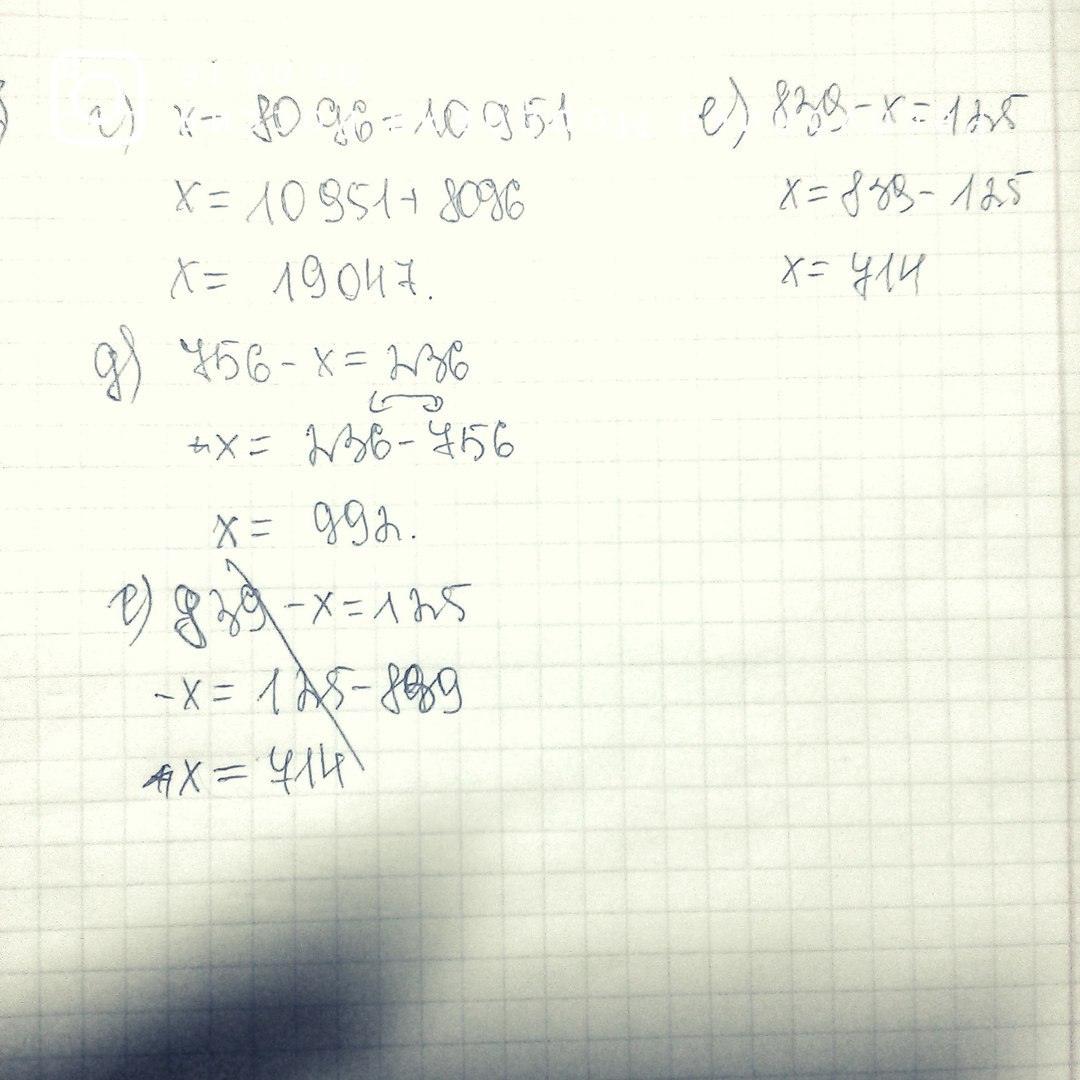 г) x - 8096 = 10951
x = 10951 + 8096
x = 19047.
д) 756 - x = 236
x = 236 - 756
x = 992.
е) 839 - x = 125
-x = 125 - 839
x = 714
е) 839 - x = 125
x = 839 - 125
x = 714